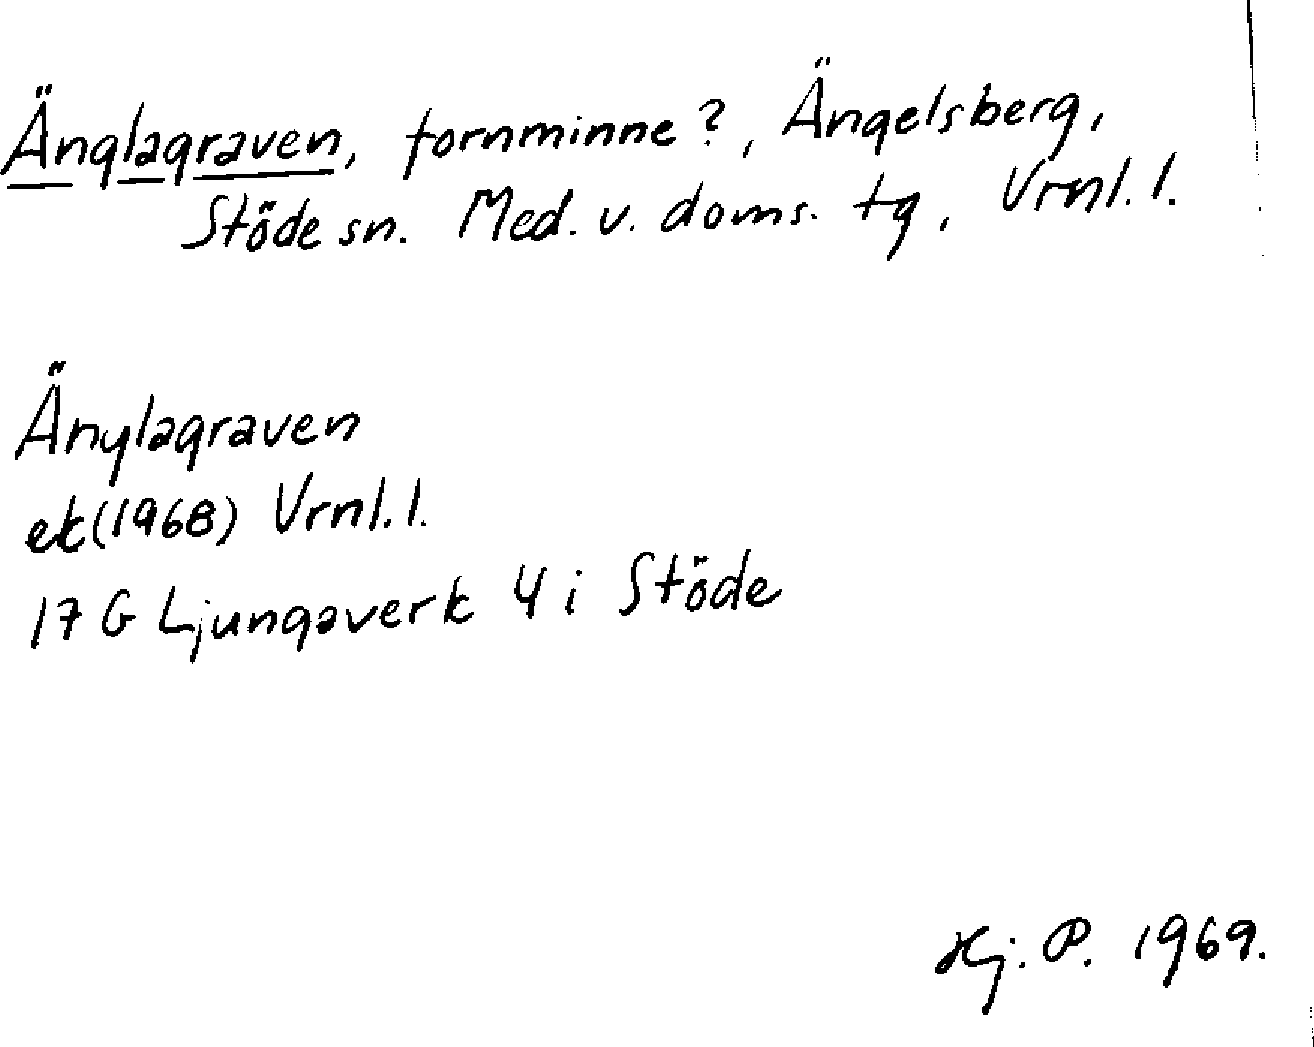 Änglagraven, fornminne?, Ängelsberg,
Stöde sn. Med. v. doms. tg, Vrnl. l.
Änglagraven
ek(1968) Vrnl. l.
17 G Ljungaverk 4 i Stöde
Hj. P. 1969.